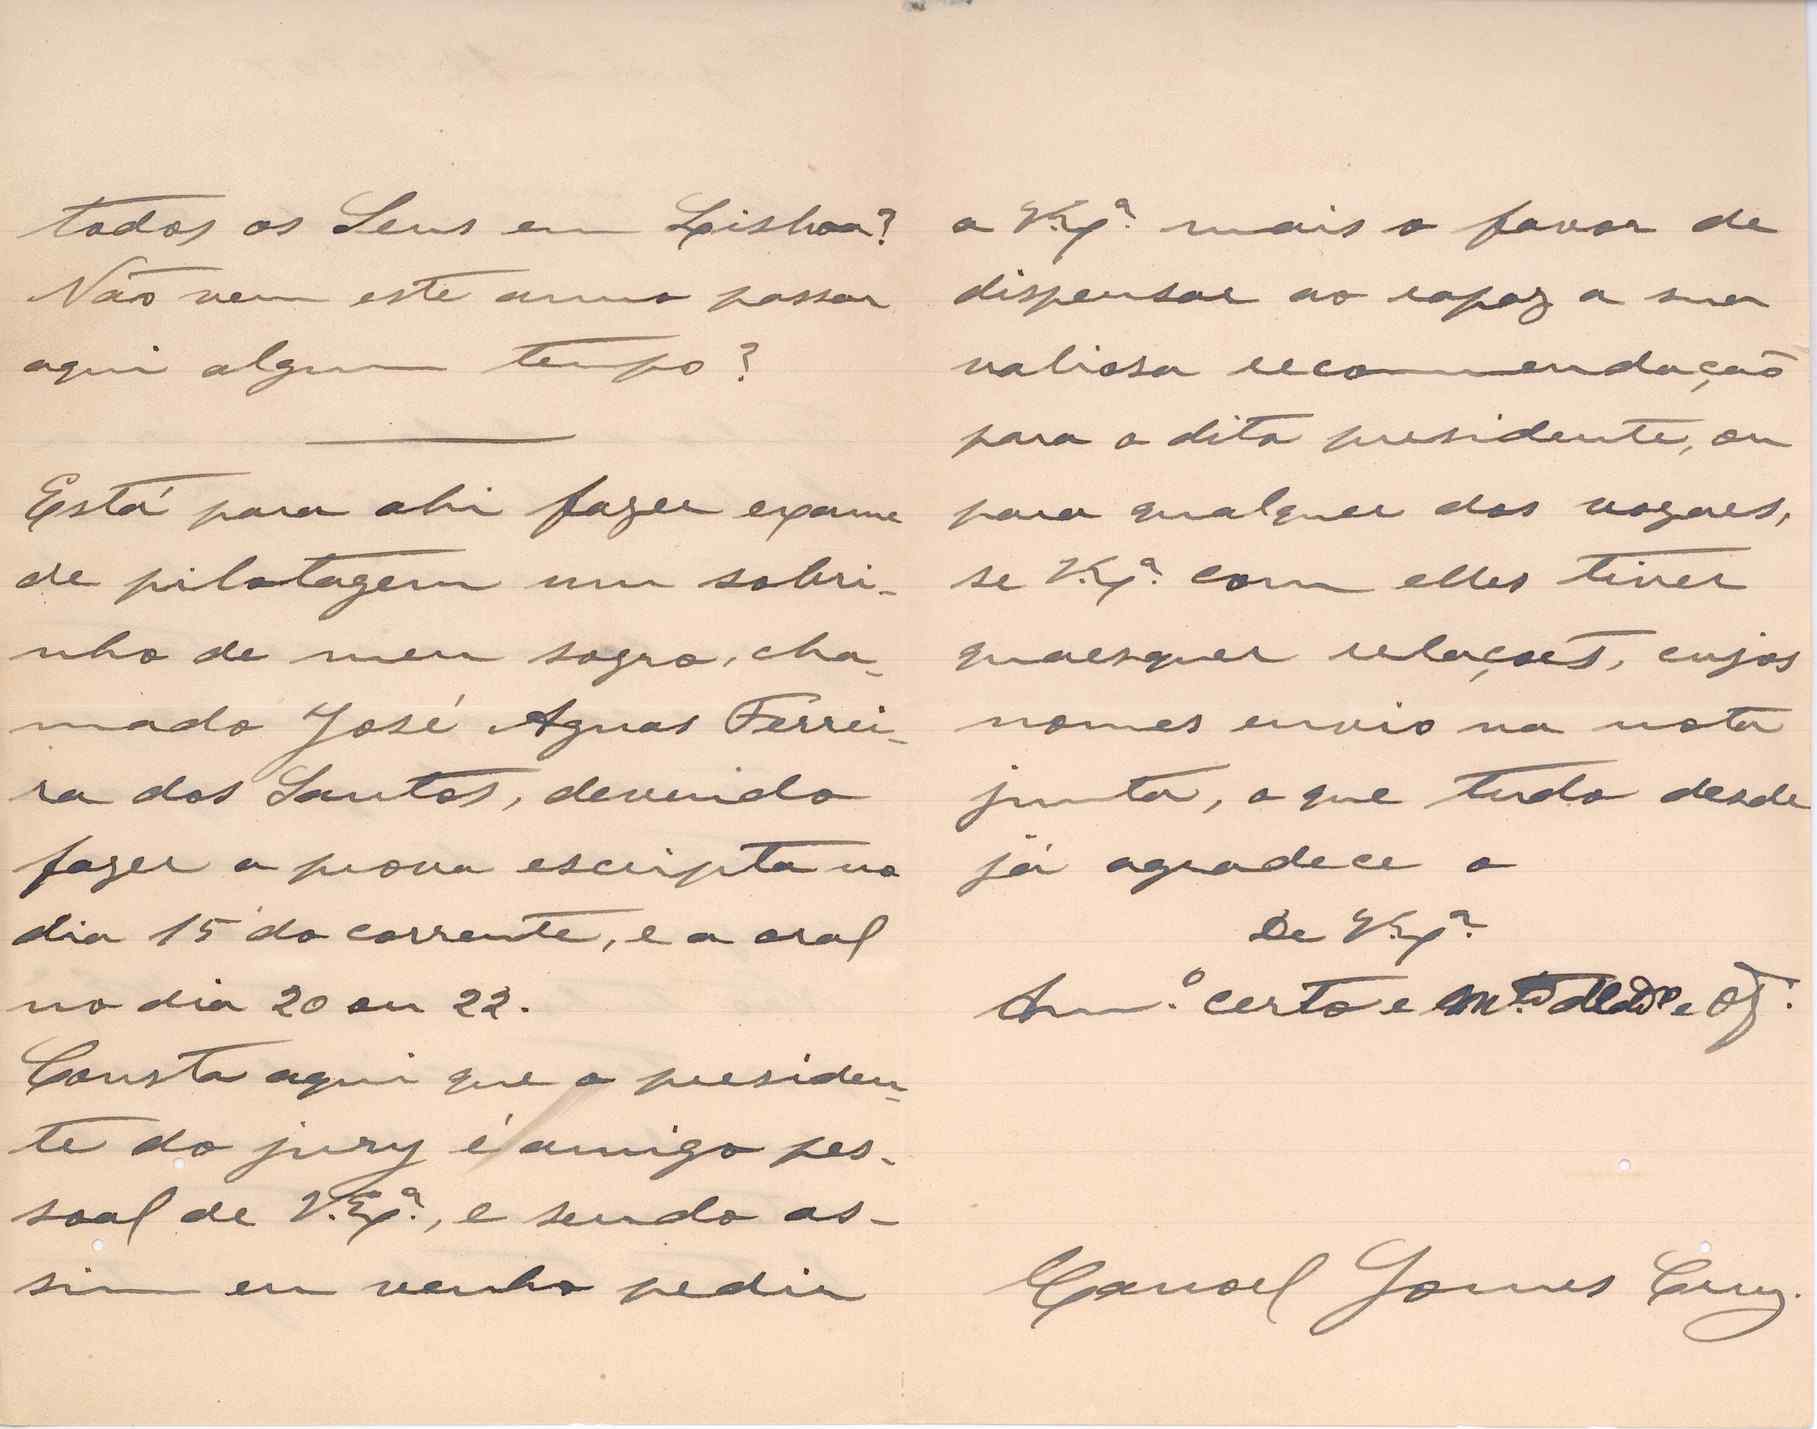 todos os Seus em Lisboa?
Não vem este anno passar
aqui algum tempo?
Está para ahi fazer exame
de pilotagem um sobri-
nho de meu sogro, cha-
mado José Aguas Ferrei-
ra dos Santos, devendo
fazer a prova escripta no
dia 15 do corrente, e a oral
no dia 20 ou 22.
Consta aqui que o presiden-
te do jury é amigo pes-
soal de V. Exª., e sendo as-
sim eu venho pedir
a V. Exª. mais o favor de
dispensar ao rapaz a sua
valiosa recommendação
para o dito presidente, ou
para qualquer dos vogaes,
se V. Exª. com elles tiver
quaesquer relações, cujos
nomes envio na nota
junta, o que tudo desde
já agradece o
De V. Exª.
Am.º certo e m.to
Manoel Gomes Cruz.